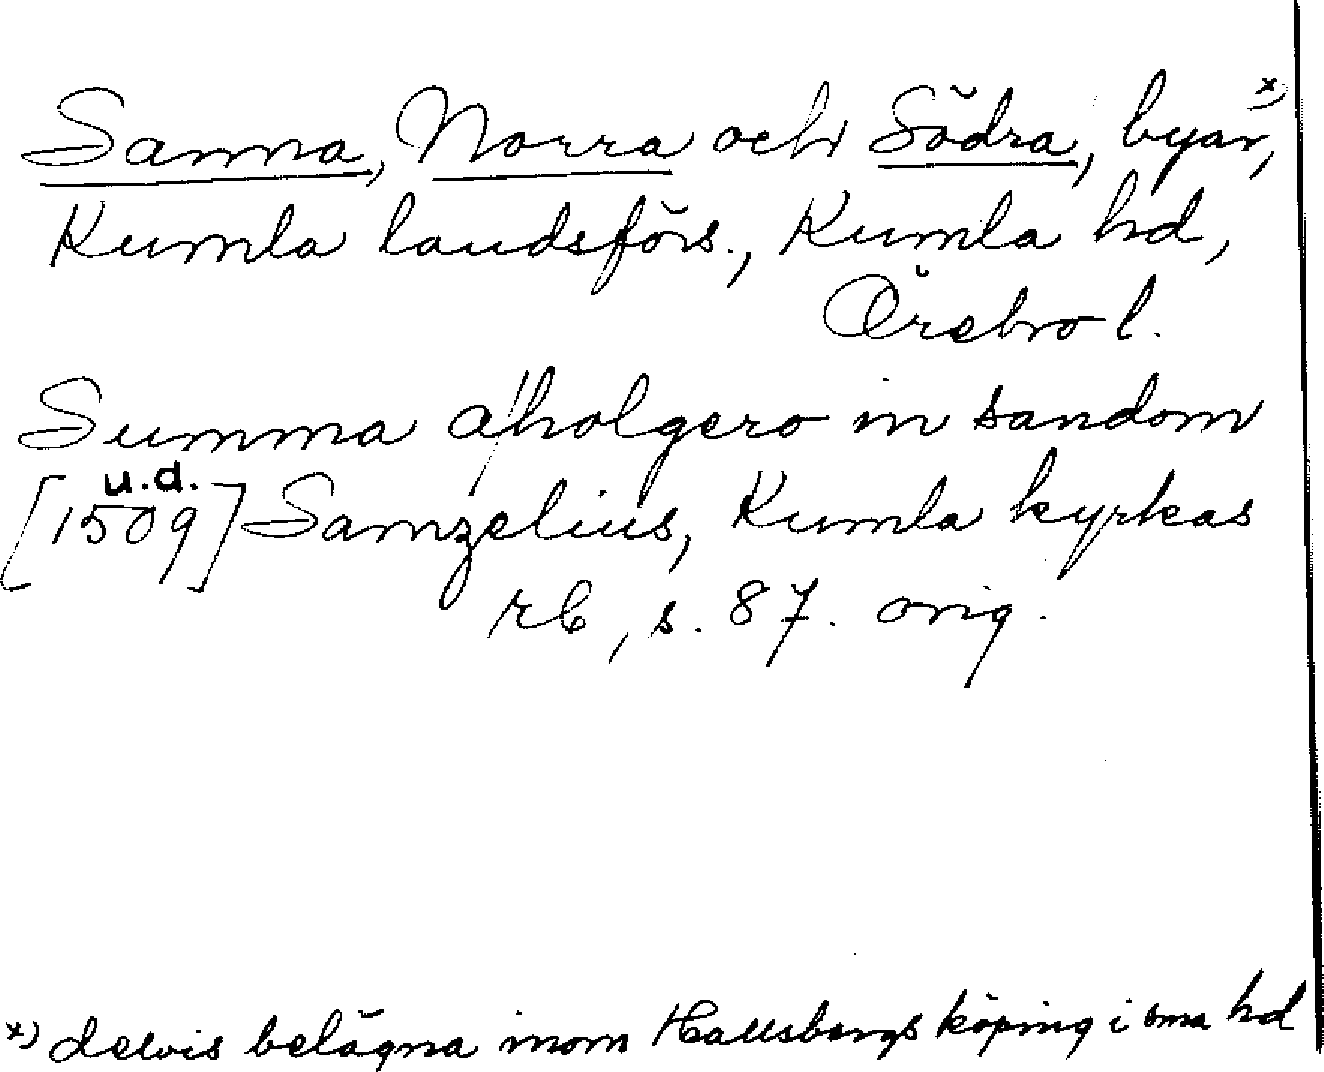 Sanna, Norra och Södra, byar,*)
Kumla landsförs., Kumla hd,
Örebro l.
Summa a/holgero in sandom
u.d.
[1509] Samzelius, Kumla kyrkas
rb, s. 87. orig.
*) delvis belägna inom Hallsbergs köping i sma hd